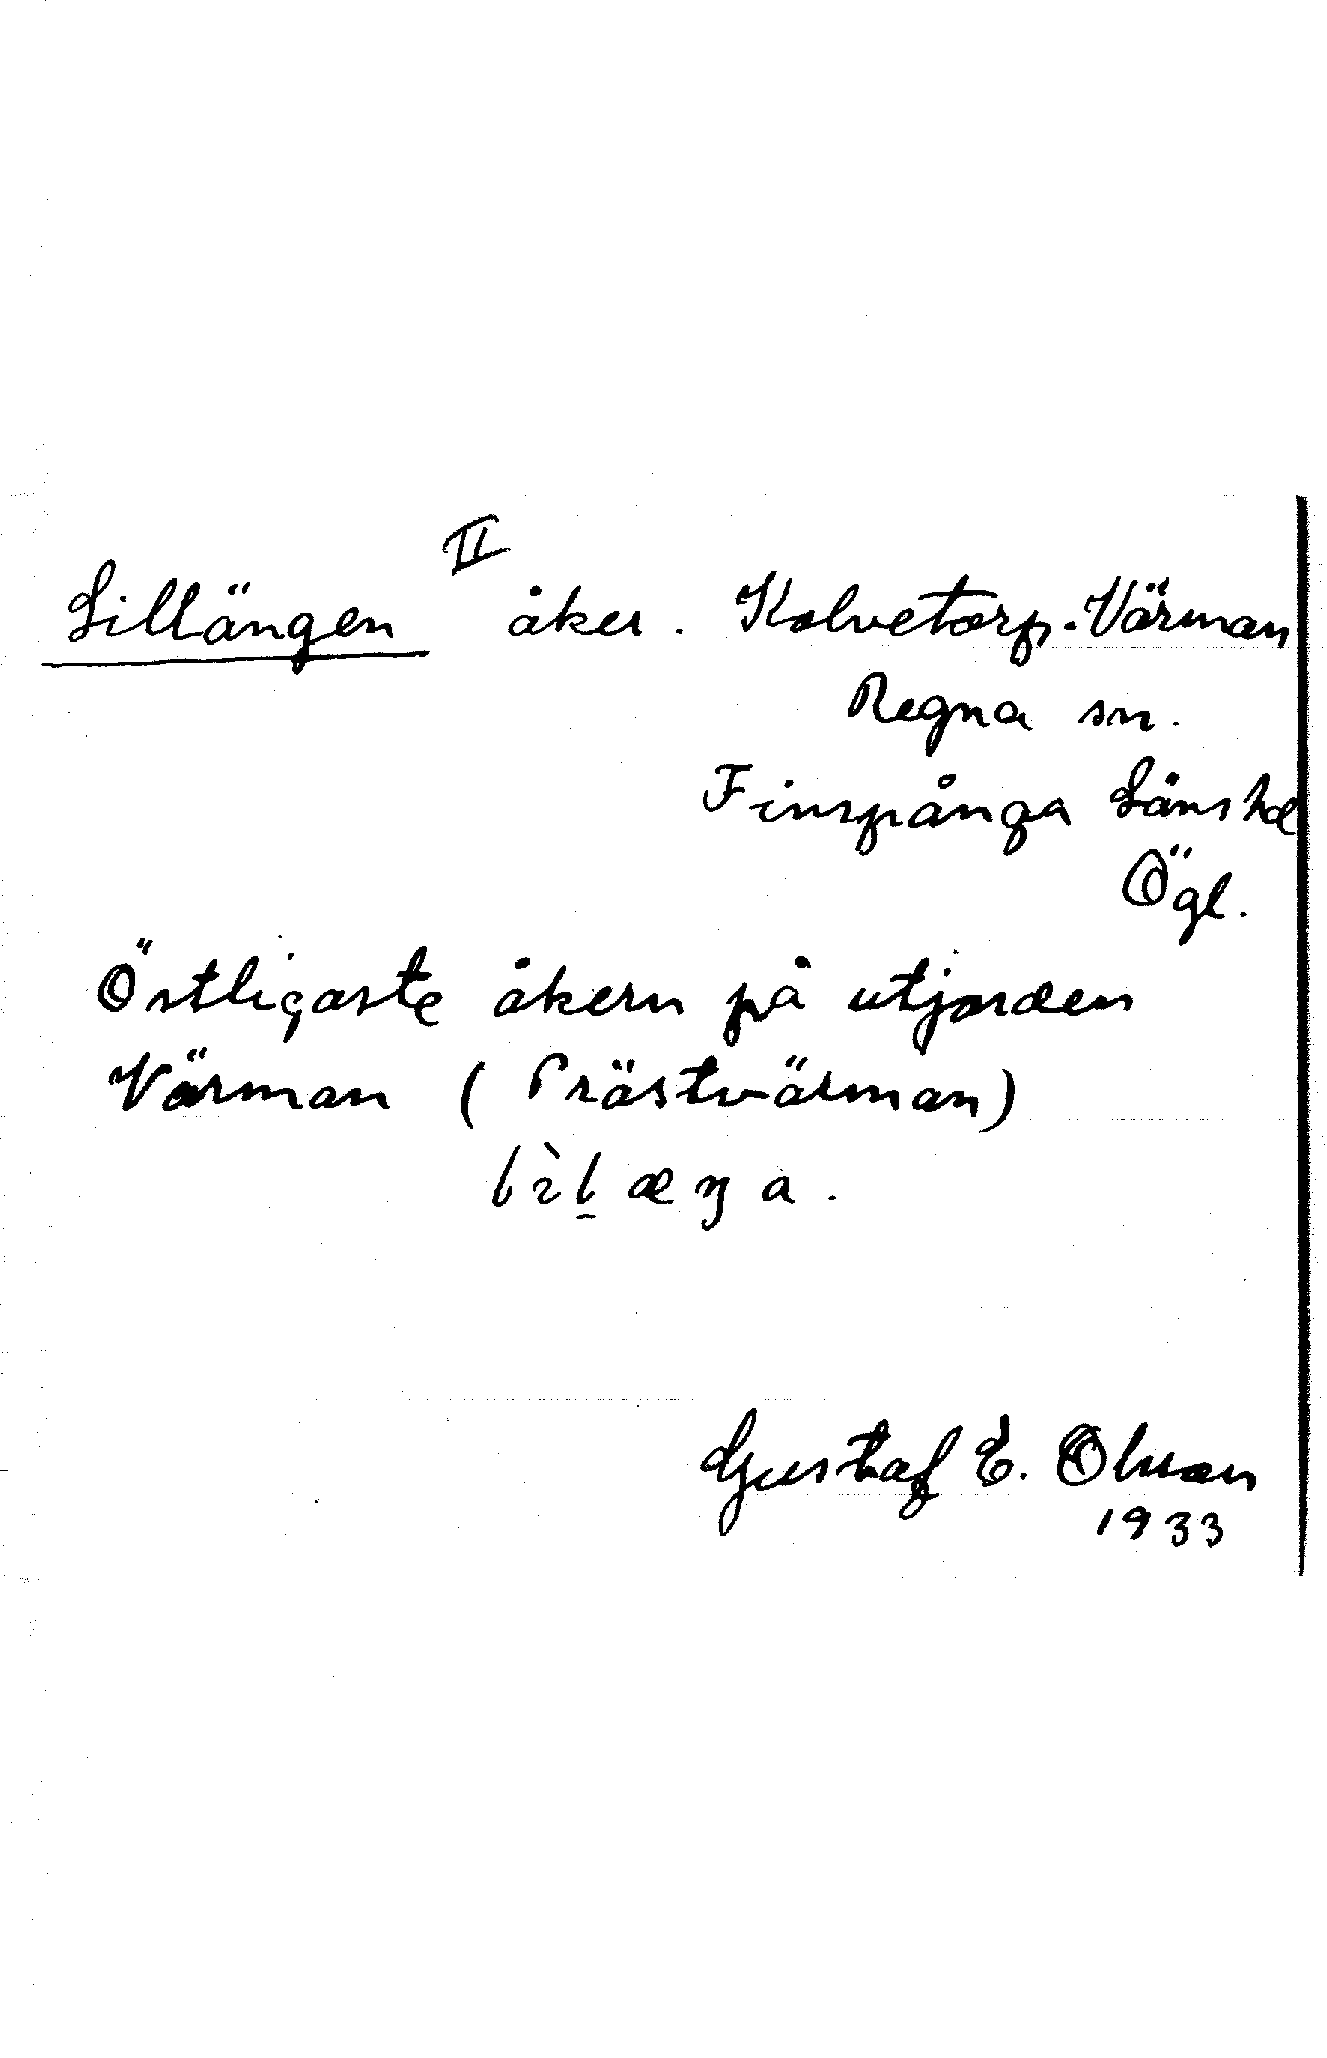 Lillängen II åker. Kalvetorp-Värman
Regna sn.
Finspånga Länshd
Ögl.
Östligaste åkern på utjorden
Värman (Prästvärman)
Gustaf E. Olsson
1933